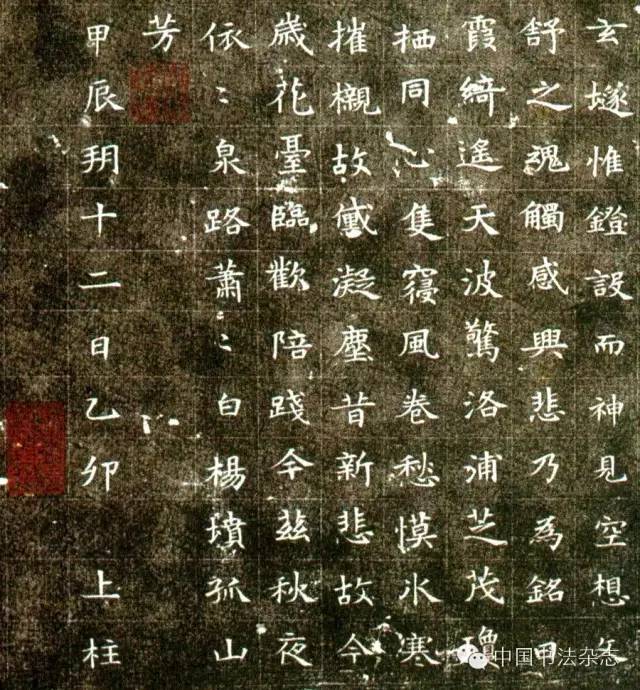 玄惟鐙設而神見空想文
舒之魂觸感興悲乃為銘曰
霞綺遙天波驚洛浦芝茂瓊
栖同心隻寢風卷愁慔水寒
摧櫬故黛凝塵昔新悲故今
歲花臺臨歡陪踐今茲秋夜
依〻泉路蕭〻白楊墳孤山
芳
甲辰朔十二日乙卯 上柱
中国书法杂志